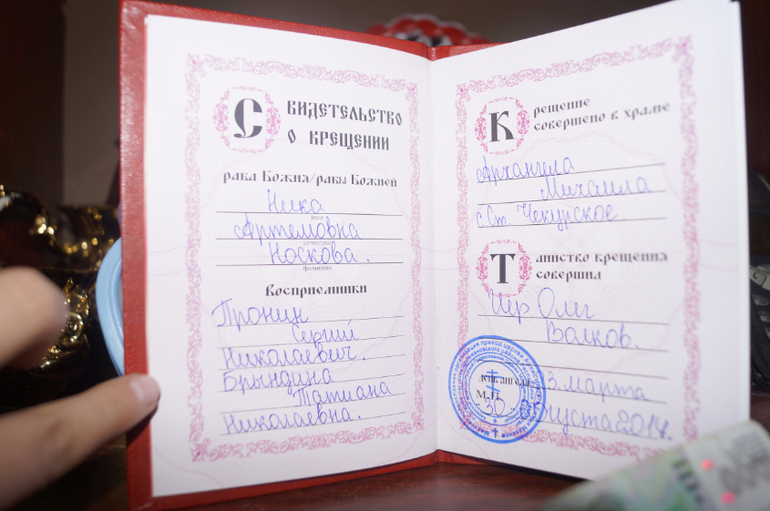 Свидетельство
о крещении
раба Божия/рабы Божией
Ника
имя
Артемовна
отчество
Носкова.
фамилия
Восприемники
Пронин
Сергий
Николаевич.
Брындина
Татиана
Николаевна.
Крещение
совершено в храме
Архангела
Михаила
с. Ст. Чекурское
Таинство крещения
совершил
Иер. Олег
Волков.
День ангела
3 марта
М.П.
30 августа 2014г.